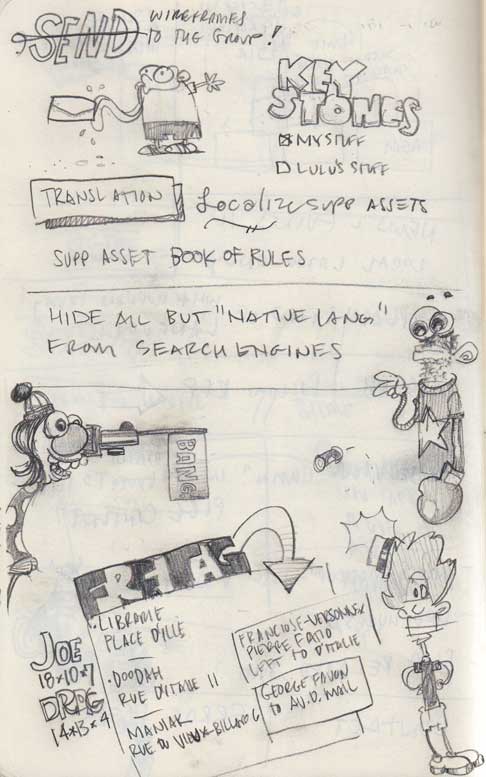 SEND WIREFRAMES
TO THE GROUP!
KEY
STONES
MY STUFF
LULU'S STUFF
TRANSLATION
Localize SUPP ASSETS
SUPP ASSET BOOK OF RULES
HIDE ALL BUT "NATIVE LANG"
FROM SEARCH ENGINES
BANG
• LIBRARIE
PLACE D'ILLE
• DOODAH
RUE D'ITALIE 11
• MANIAK
RUE DU VIEUX-BILLARD 6
PIERRE FATIO
LEFT TO D'ITALIE
GEORGE FAVON
TO AV. D. MAIL
JOE
18×10×7
DRAG
14×13×4